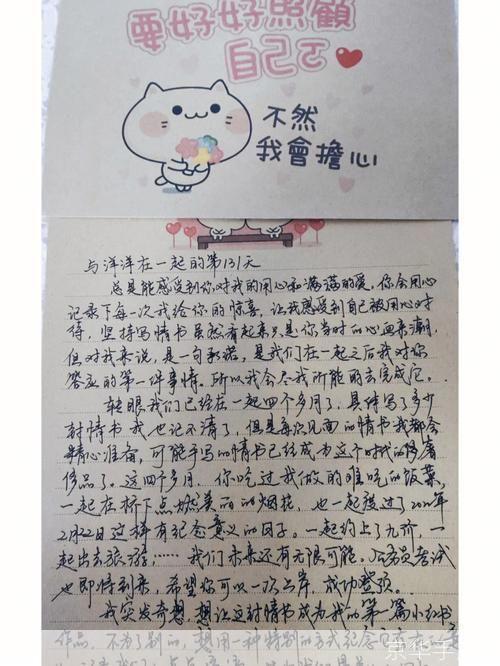 要好好照顧
自己ㄛ
不然
我會擔心
与洋洋在一起的第131天
总是能感受到你对我的用心和满满的爱,你会用心
记录下每一次我给你的惊喜,让我感受到自己被用心对
待,坚持写情书虽然看起来只是你当时的心血来潮,
但对我来说,是一句承诺,是我们在一起之后我对你
答应的第一件事情。所以我会尽我所能的去完成它。
转眼我们已经在一起四个多月了,具体写了多少
封情书我也记不清了,但是每次见面的情书我都会
精心准备,可能手写的情书已经成为这个时代的奢
侈品了。这四个多月,你吃过我做的难吃的饭菜,
一起在桥下点燃美丽的烟花,也一起度过了2022年
2月22日这样有纪念意义的日子。一起约上了九价,一
起出去旅游,……我们未来还有无限可能。公务员考试
也即将到来,希望你可以一次上岸,成功登顶。
我突发奇想,想让这封情书成为我的第一篇小红书
作品,不为了别的,想用一种特别的方式纪念
京华子